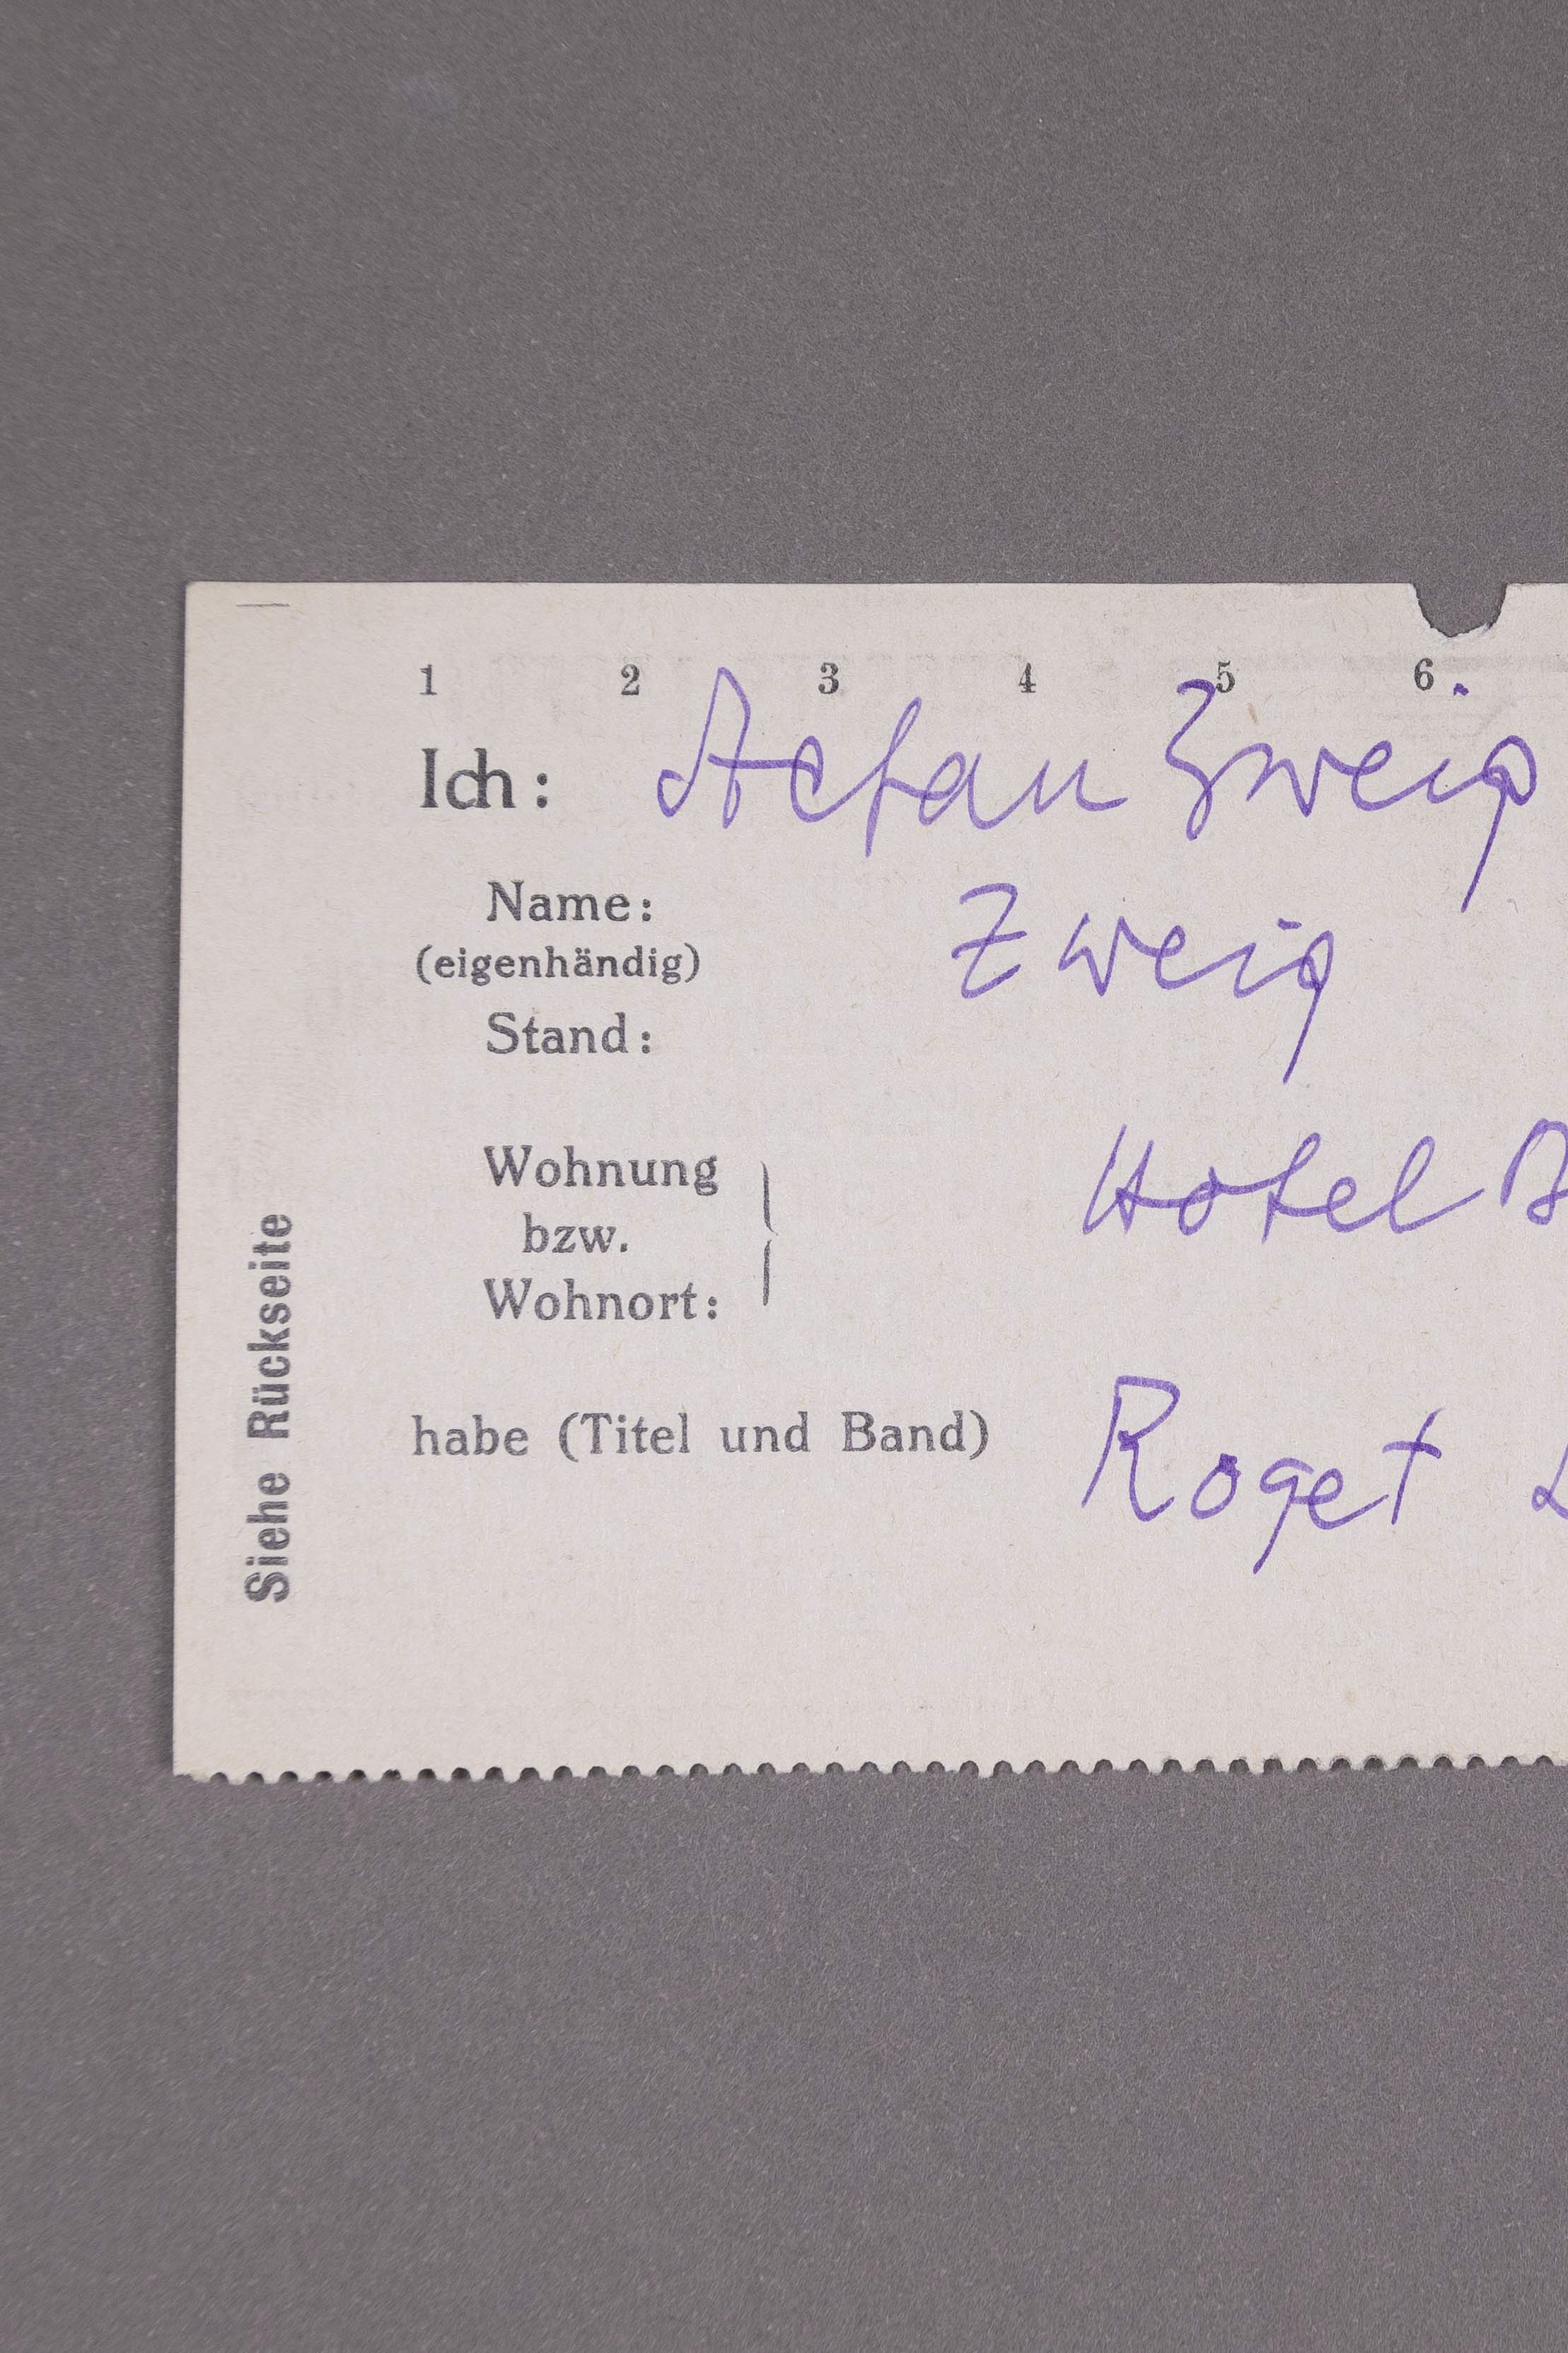 1 2 3 4 5 6
Ich: Stefan Zweig
Name: Zweig
(eigenhändig)
Stand:
Wohnung
bzw.
Wohnort:
Hotel
habe (Titel und Band) Roget
Siehe Rückseite